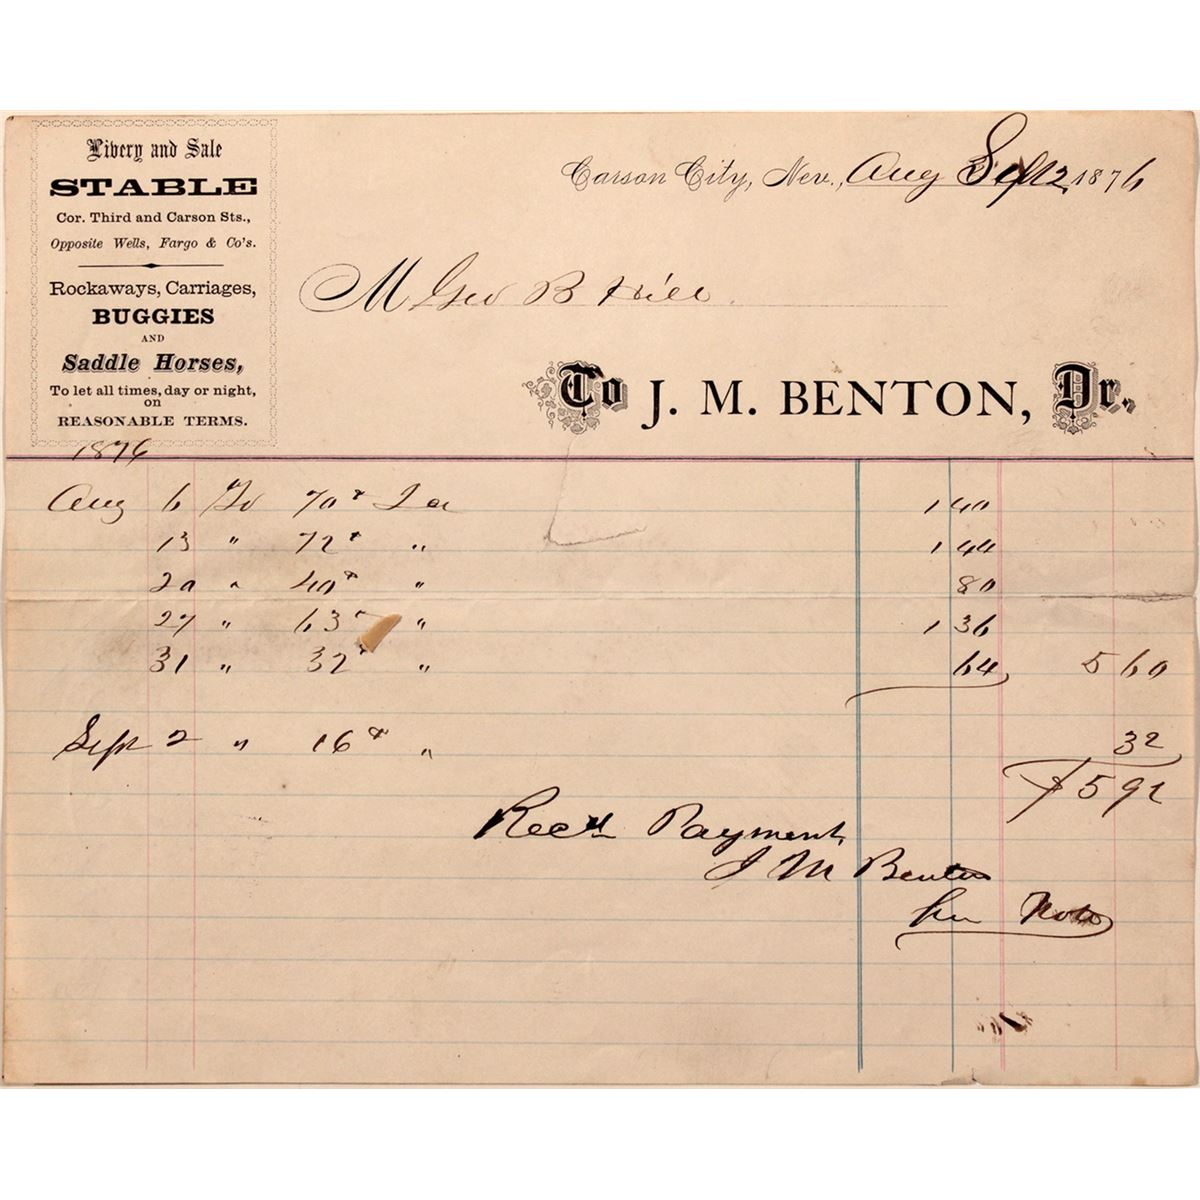 Livery and Sale
STABLE
Cor. Third and Carson Sts.,
Opposite Wells, Fargo & Co's.
Rockaways, Carriages,
BUGGIES
AND
Saddle Horses,
To let all times, day or night,
on
REASONABLE TERMS.
Carson City, Nev., Aug Sept 2, 1876
M Geo B Hill
To J. M. BENTON, Dr.
1876
Aug 6 To 70 # Ice 1 40
13 " 72 # " 1 44
20 " 40 # " 80
27 " 63 " 1 36
31 " 32 # " 64 5 60
Sept 2 " 16 # " 32
$5 92
Recd Payment
J M Benton